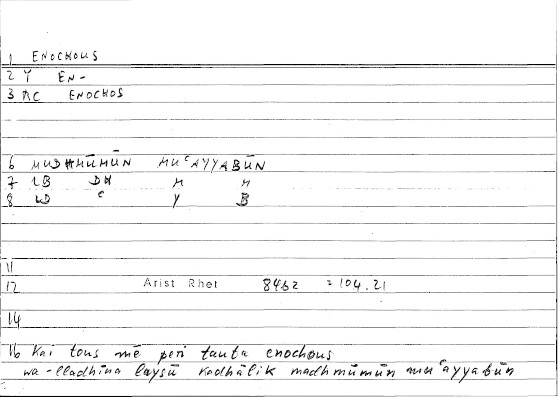 1 ENOCHOUS
2 Y EN-
3 AC ENOCHOS
6 MUDHMŪMŪN MUᶜAYYABŪN
7 LB DH M M
8 LD C Y B
11
12 Arist Rhet 84b2 = 104.21
14
16 Kai tous mē peri tauta enochous
wa-lladhīna laysū kadhālik madhmūmūn muᶜayyabūn